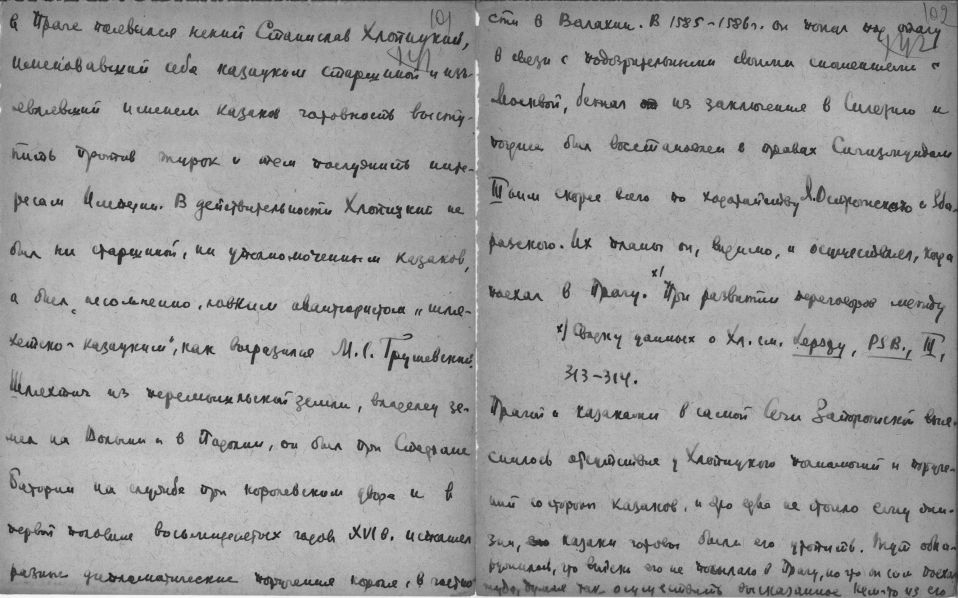 101
в Праге появился некий Станислав Хлопицкий,
именовавший себя казацким старшиной и изъ-
являвший именем казаков готовность высту-
пить против турок и тем послужить инте-
ресам Империи. В действительности Хлопицкий не
был ни старшиной, ни уполномоченным казаков,
а был, несомненно, ловким авантюристом „шля-
хетско-казацким", как выразился М.С. Грушевский.
Шляхтич из перемышльской земли, владелец зе-
мел на Волыни и в Подолии, он был при Стефане
Батории на службе при королевском дворе и в
первой половине восьмидесятых годов XVI в. исполнял
разные дипломатические поручения короля, в частно-
102
сти в Валахии. В 1585-1586г. он попал под опалу
в связи с подозрительными своими сношениями с
Москвой, бежал из заключения в Силезию и
позднее был восстановлен в правах Сигизмундом
III-им скорее всего по ходатайству Я. Острожского и Зба-
ражского. Их планы он, видимо, и осуществлял, когда
поехал в Прагу. х) При развитии переговоров между
х) Сводку данных о Хл. см. Barączy, PSB., III,
313-314.
Прагой и казаками в самой Сечи Запорожской выя-
снилось отсутствие у Хлопицкого полномочий и поруче-
ний со стороны казаков, и это едва не стоило ему жи-
зни, казаки готовы были его утопить. Тут обна-
ружилось, что войско его не посылало в Прагу, но что он сам поехал
туда, думая так осуществить высказанное кем-то из его